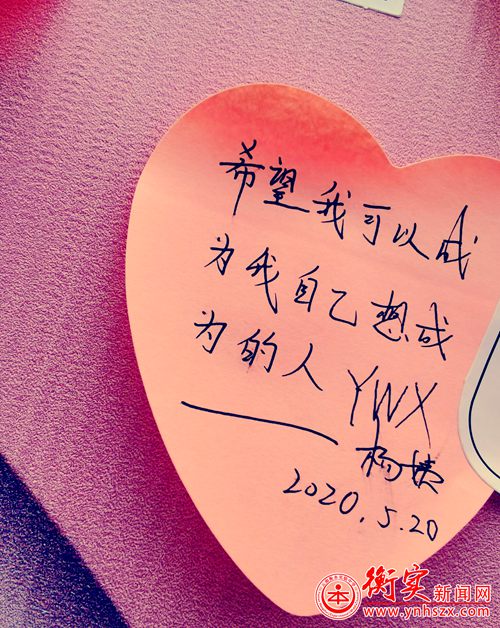 希望我可以成
为我自己想成
为的人 YWX
杨
2020.5.20
衡实新闻网
www.ynhszx.com